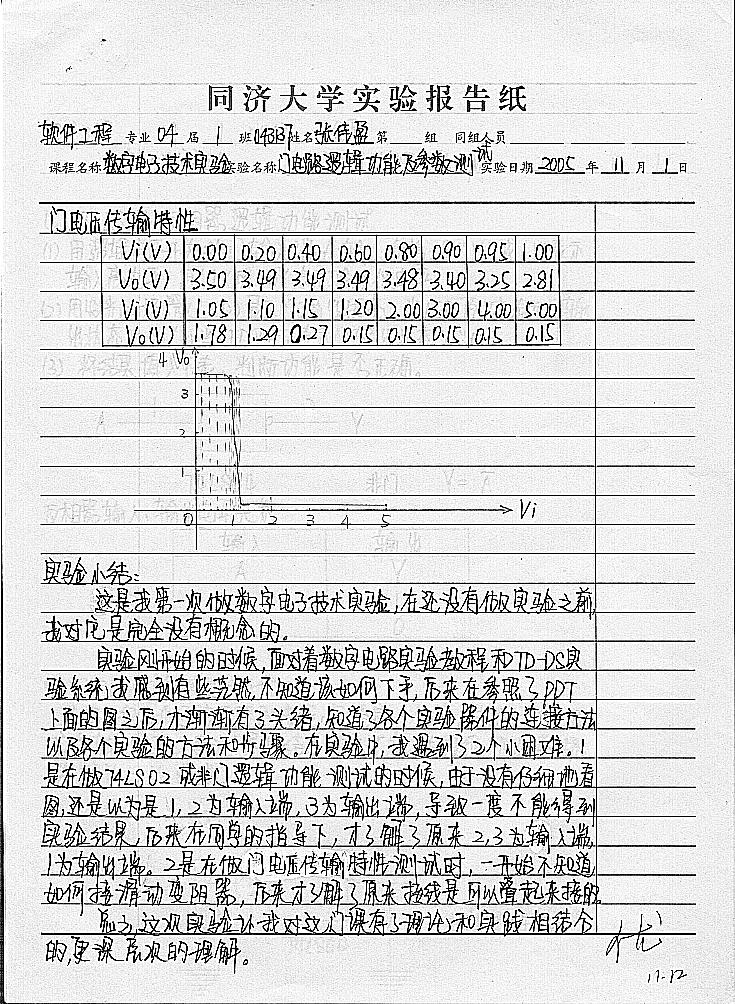 同济大学实验报告纸
软件工程 专业 04 届 1 班 043137 姓名 张伟盈 第 组 同组人员
课程名称 数字电子技术实验 实验名称 门电路逻辑功能及参数测试 实验日期 2005 年 11 月 1 日
门电压传输特性
Vi(V) 0.00 0.20 0.40 0.60 0.80 0.90 0.95 1.00
Vo(V) 3.50 3.49 3.49 3.49 3.48 3.40 3.25 2.81
Vi(V) 1.05 1.10 1.15 1.20 2.00 3.00 4.00 5.00
Vo(V) 1.78 1.29 0.27 0.15 0.15 0.15 0.15 0.15
4 Vo
3
2
1
0 1 2 3 4 5 Vi
实验小结:
这是我第一次做数字电子技术实验,在还没有做实验之前,
我对它是完全没有概念的。
实验刚开始的时候,面对着数字电路实验教程和TD-DS实
验系统我感到有些茫然,不知道该如何下手,后来在参照了PPT
上面的图之后,才渐渐有了头绪,知道了各个实验器件的连接方法
以及各个实验的方法和步骤。在实验中,我遇到了2个小困难。1
是在做74LS02成非门逻辑功能测试的时候,由于没有仔细地看
图,还是以为是1,2为输入端,3为输出端,导致一度不能得到
实验结果,后来在同学的指导下,才了解了原来2,3为输入端,
1为输出端。2是在做门电压传输特性测试时,一开始不知道
如何接滑动变阻器,后来才了解了原来接线是可以叠起来接的。
总之,这次实验让我对这门课有了理论和实践相结合
的,更深层次的理解。
11-12